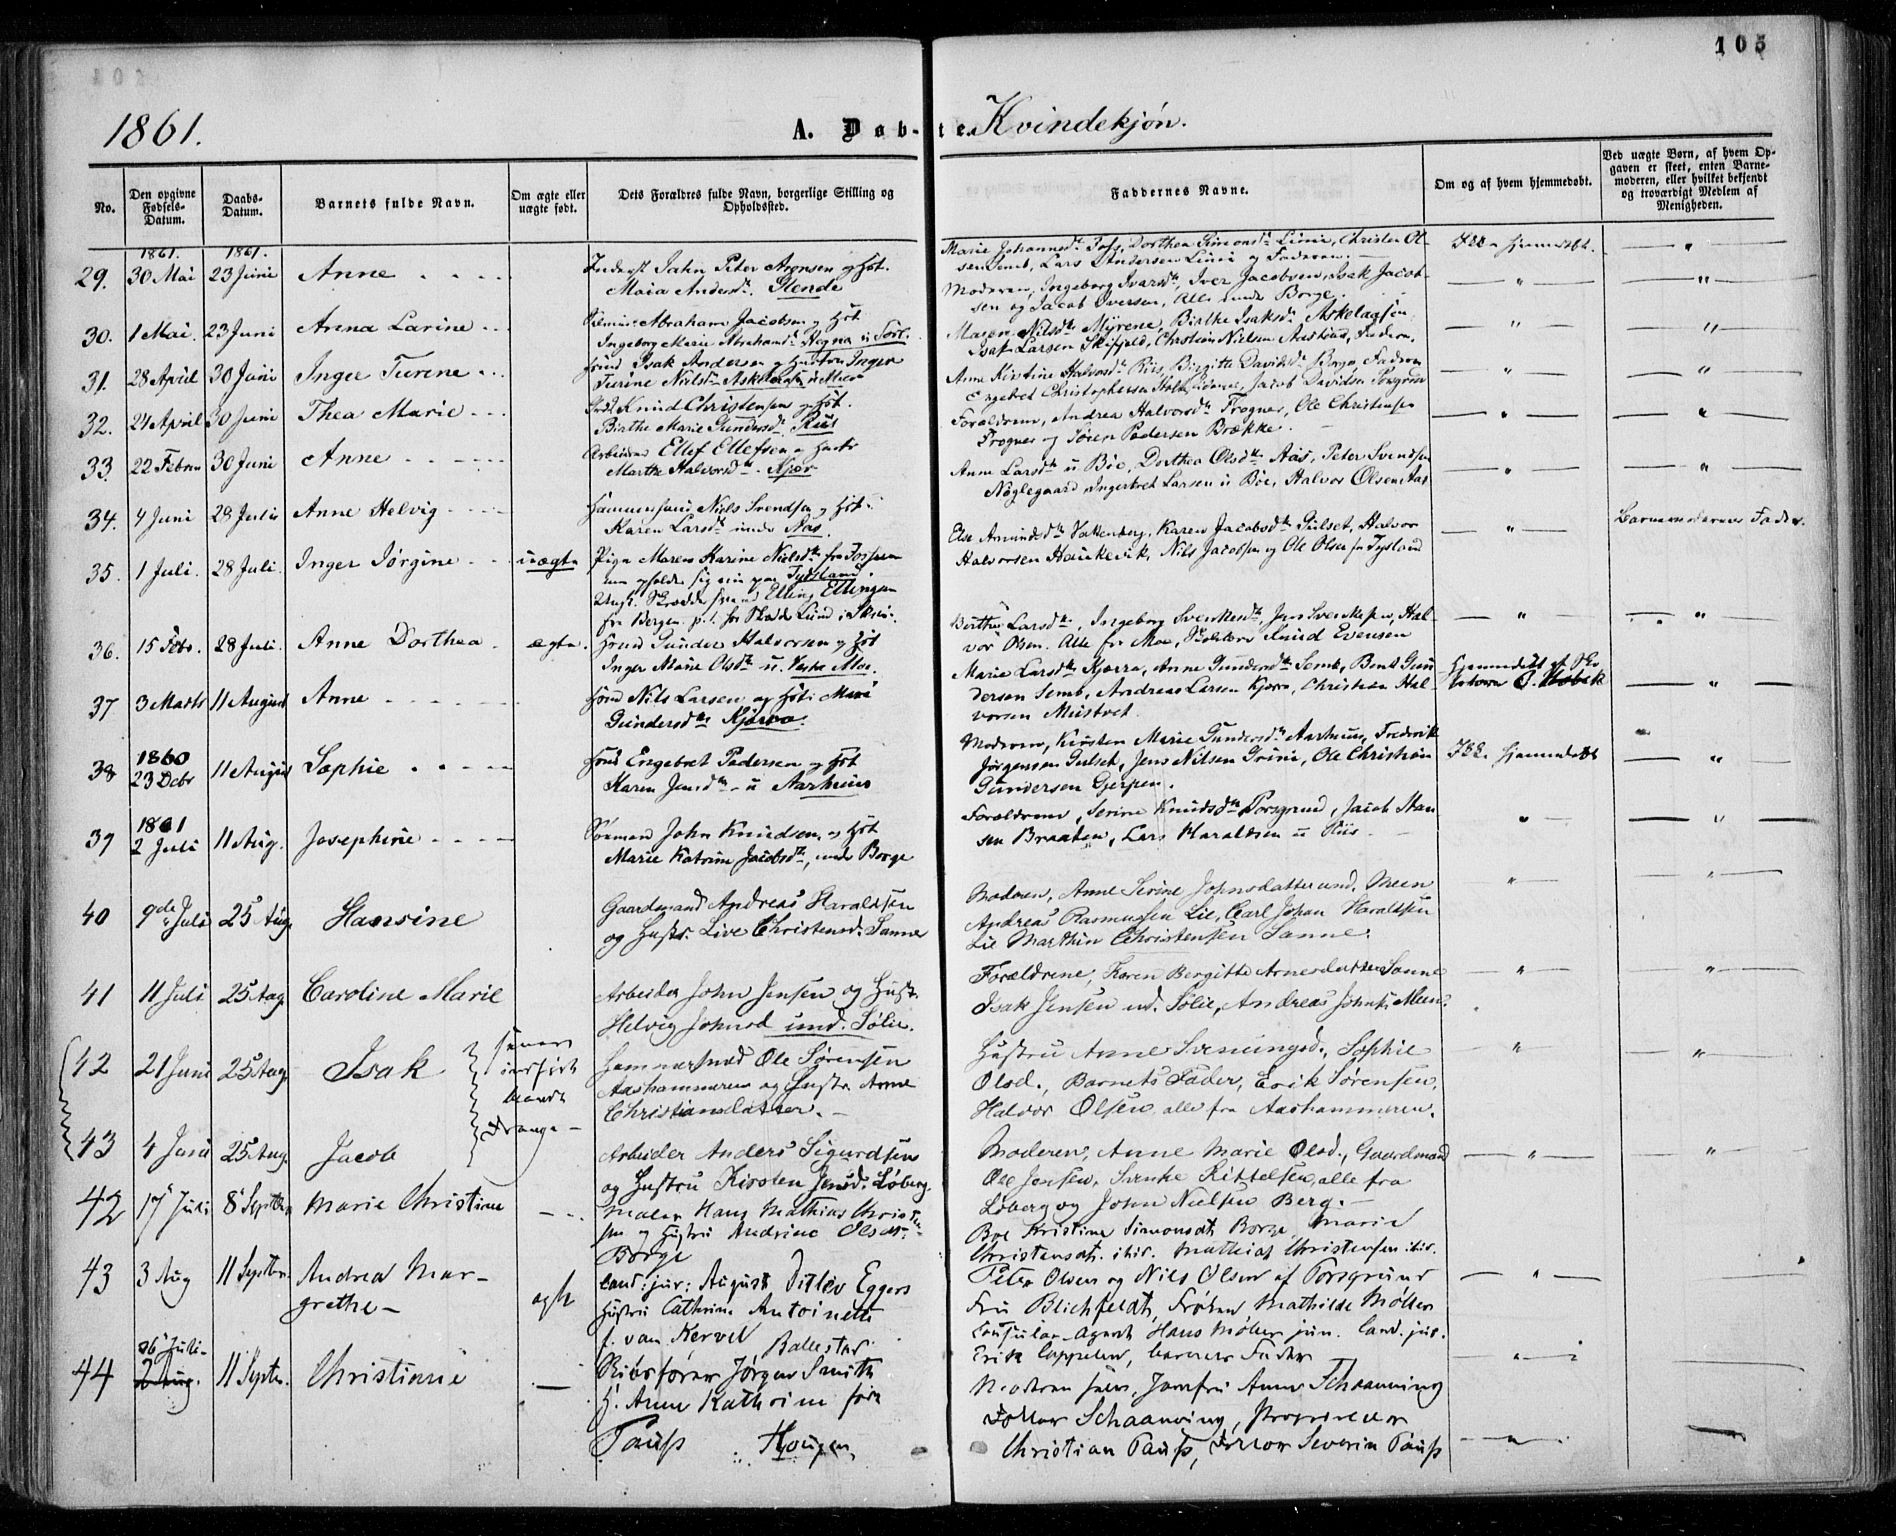 105
1861.
A. Døb-te. Kvindekjøn.
No.
Den opgivne Fødsels-Datum.
Daabs-Datum.
Barnets fulde Navn.
Om ægte eller uægte født.
Dets Forældres fulde Navn, borgerlige Stilling og Opholdssted.
Faddernes Navne.
Om og af hvem hjemmedøbt.
Ved uægte Børn, af hvem Opgaven er skeet, enten Barnemoderen, eller hvilket bekjendt og troværdigt Medlem af Menigheden.
1861. 1861.
29. 30 Mai 23 Juni Anne
John Peter Aronsen og Hst.
Maia Andersd. Glende
Marie Johannesd. Dorthea Simonsd. Linie, Christen Ol-
sen Semb, Lars Andersen Linie og Faderen.
Ikke hjemmedøbt.
30. 1 Mai. 23 Juni Anna Larine
Abraham Jacobsen og Hst
Ingeborg Marie Abrahamsd. Hogna
Moderen, Ingeborg Ivarsd., Iver Jacobsen, Isak Jacob-
sen og Jacob Iversen, Alle under Borge.
31. 28 April 30 Juni Inger Turine
Isak Andersen og Hustru Inger
Turine Nilsd.
Maren Nilsd. Myrene, Birthe Isaksd.
Isak Larsen Skifjeld, Christian Nielsen Aastvid, Faderen.
32. 24 April 30 Juni Thea Marie
Knud Christensen og Hst.
Birthe Marie Gundersd. Riis
Anne Kirstine Halvorsd. Riis, Birgitte Davidsd. Borge, Faderen
Engebret Christophersen, Jacob Davidsen Porsgrund
33. 22 Febru 30 Juni Anne
Arbeider Ellef Ellefsen og Hustr
Marthe Halvorsd. Kjør
Forældrene, Andrea Halvorsd. Frogner, Ole Christensen
Frogner og Søren Pedersen Brække.
34. 4 Juni 28 Juli Anne Helvig
Hammersmd Niels Svendsen og Hst.
Karen Larsd. under Aas.
Anne Larsd. u Böe, Dorthea Olsd. Aas, Peter Svendsen
Nøglegaard, Ingebret Larsen u Böe, Halvor Olsen Aas
35. 1 Juli. 28 Juli. Inger Jørgine uægte
Pige Maren Karine Nielsd. fra
opholder sig nu paa Tydsland.
Elling Ellingsen
fra Bergen p. t. hos Lund i Skien.
Else Amundsd. Valkenborg, Karen Jacobsd. Gulset, Halvor
Halvorsen Haukevik, Nils Jacobsen og Ole Olsen fra Tydsland
Barnemoderens Fader.
36. 15 Febr. 28 Juli. Anne Dorthea ægte.
Gunder Halvorsen og Hst
Inger Marie Olsd. u. Moe.
Birthe Larsd., Ingeborg Svenkesd., Jens Svenkesen, Hal-
vor Olsen. Alle fra Moe, Knud Evensen
37 3 Marts 11 August Anne
Nils Larsen og Hst. Marie
Gundersd. Kjærra.
Marie Larsd. Kjærra, Anne Gundersd. Semb, Bent Gun
dersen Semb, Andreas Larsen Kjærra, Christian Hal-
vorsen Mustvet.
Hjemmedøbt af
38 1860 23 Debr 11 August Sophie
Engebret Pedersen og Hst
Karen Jensd. u Aarhuus
Moderen, Kirsten Marie Gundersd. Aarhuus, Frederik
Jørgensen Gulset, Jens Nilsen Grini, Ole Christian
Gundersen Gjerpen.
Ikke hjemmedøbt
39 1861 2 Juli 11 Aug. Josephine
Sømand John Knudsen og Hst
Marie Katrine Jacobsd., under Borge
Forældrene, Serine Knudsd. Porsgrund, Jacob Han
sen Braaten, Lars Haraldsen u Riis
40 9de Juli 25 Aug Hansine
Gaardmand Andreas Haraldsen
og Hustr. Live Christensd. Sanne
Moderen, Anne Serine Johnsdatter und. Meen
Andreas Rasmussen Lie, Carl Johan Haraldsen
Lie Marthin Christensen Sanne.
41 11 Juli 25 Aug Caroline Marie
Arbeider John Jensen og Hustr.
Helvig Johnsd und. Sølie.
Forældrene, Karen Bergitte Arnesdatter Sanne
Isak Jensen und. Sølie, Andreas Johns. Meen.
42 21 Juni 25 Aug. Isak
indført
blandt
Drenge
Hammersmd Ole Sørensen
Aashammeren og Hustr. Anne
Christiansdatter.
Hustru Anne Svenningsd., Sophie
Olsd., Barnets Fader, Erik Sørensen,
Halvor Olsen, alle fra Aashammeren.
43 4 Juni 25 Aug. Jacob
Arbeider Anders Sigurdsen
og Hustru Kirsten Jensd. Løberg
Moderen, Anne Marie Olsd., Gaardmand
Ole Jensen, Svenke Kittelsen, alle fra
Løberg og John Nielsen Berg.
42 17 Juli 8 Septbr Marie Christine
Maler Hans Mathias Christen
sen og Hustru Andrine Olsdt.
Borge
Boe Kristine Simonsdt Borge, Marie
Christensdt. ibid. Mathias Christensen ibid.
Peter Olsen og Nils Olsen af Porsgrund
43 3 Aug 11 Septbr. Andrea Mar-
grethe ægte
Cand: jur: August Ditlev Eggers
Hustru Cathrine Antoinette
f. van Kervel Ballestad.
Fru Blichfeldt, Frøken Mathilde Møller
Consular-Agent Hans Møller jun. Cand. jur.
Erik Cappelen, Barnets Fader
44 26 Juli 2 Aug. 11 Septbr. Christiane
Skibsfører Jørgen Smith
H. Anne Kathrine født
Pauss Hougen
Moderen selv, Jomfru Anne Schaanning
Doktor Schaanning, Proprietær
Christian Pauss, Doktor Severin Pauss